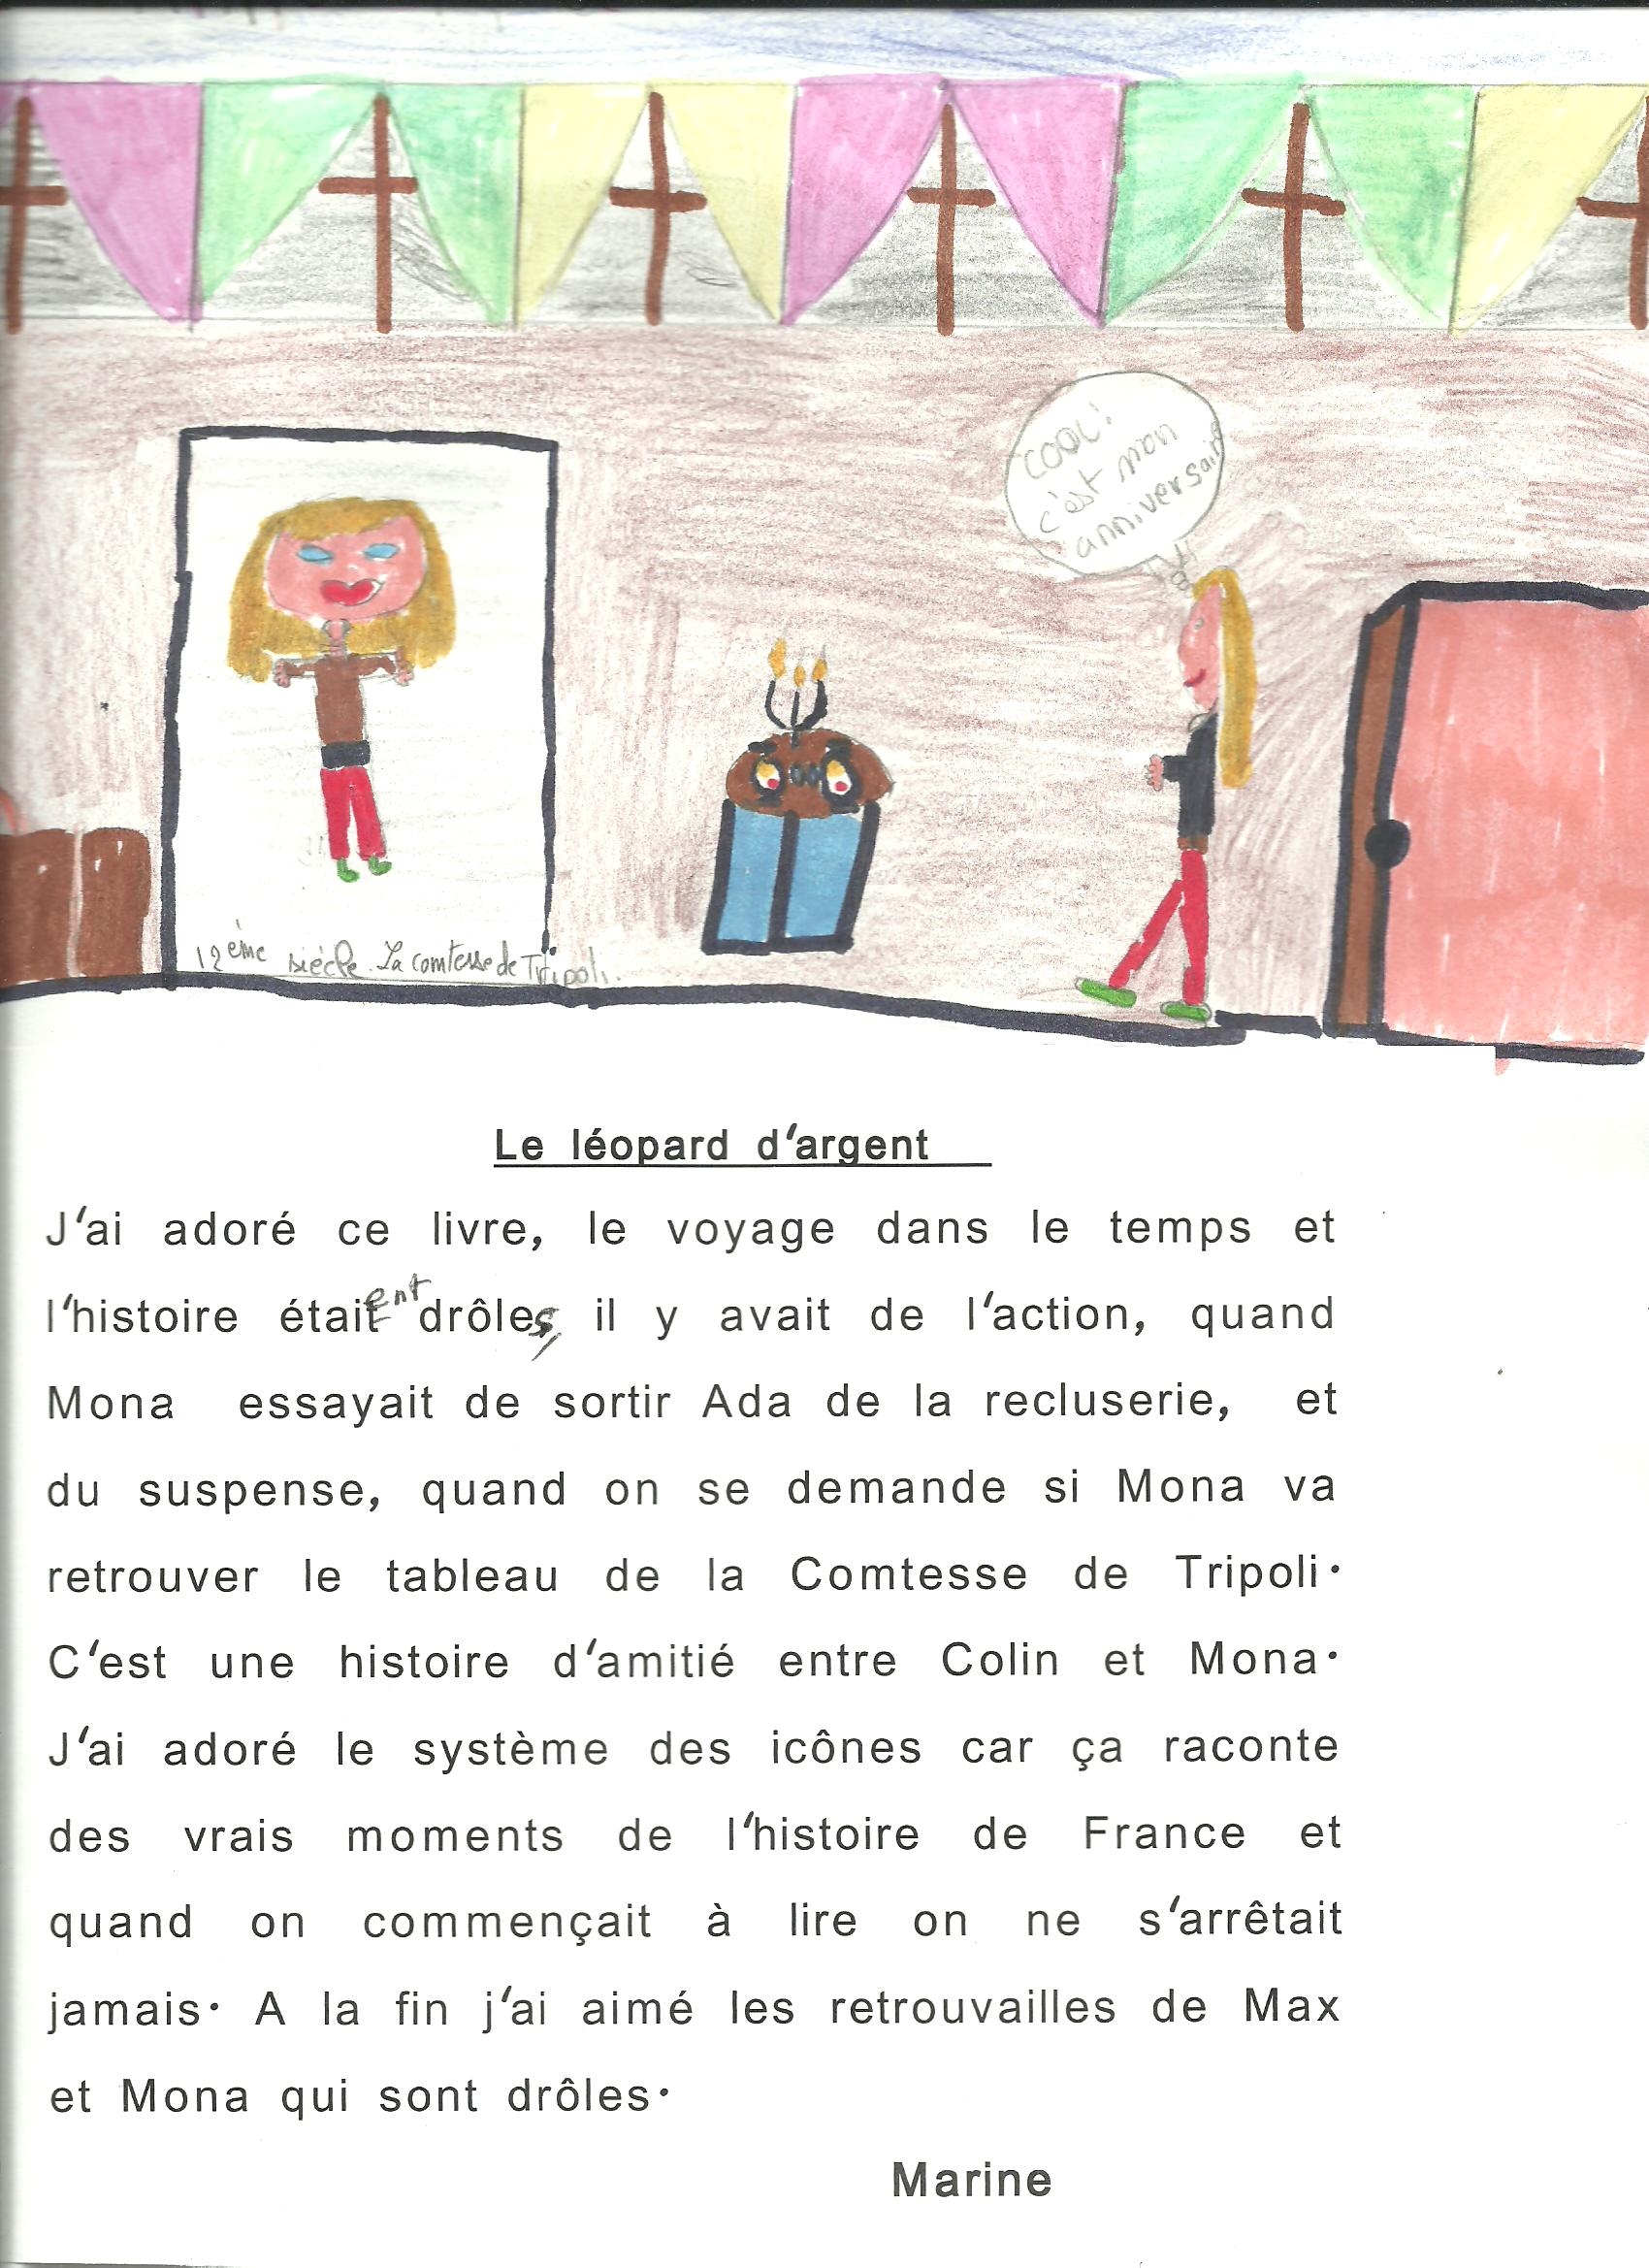 cool!
c'est mon
anniversaire
12ème siècle. La comtesse de Tripoli.
Le léopard d'argent
J'ai adoré ce livre, le voyage dans le temps et
l'histoire étaient drôles, il y avait de l'action, quand
Mona essayait de sortir Ada de la recluserie, et
du suspense, quand on se demande si Mona va
retrouver le tableau de la Comtesse de Tripoli.
C'est une histoire d'amitié entre Colin et Mona.
J'ai adoré le système des icônes car ça raconte
des vrais moments de l'histoire de France et
quand on commençait à lire on ne s'arrêtait
jamais. A la fin j'ai aimé les retrouvailles de Max
et Mona qui sont drôles.
Marine